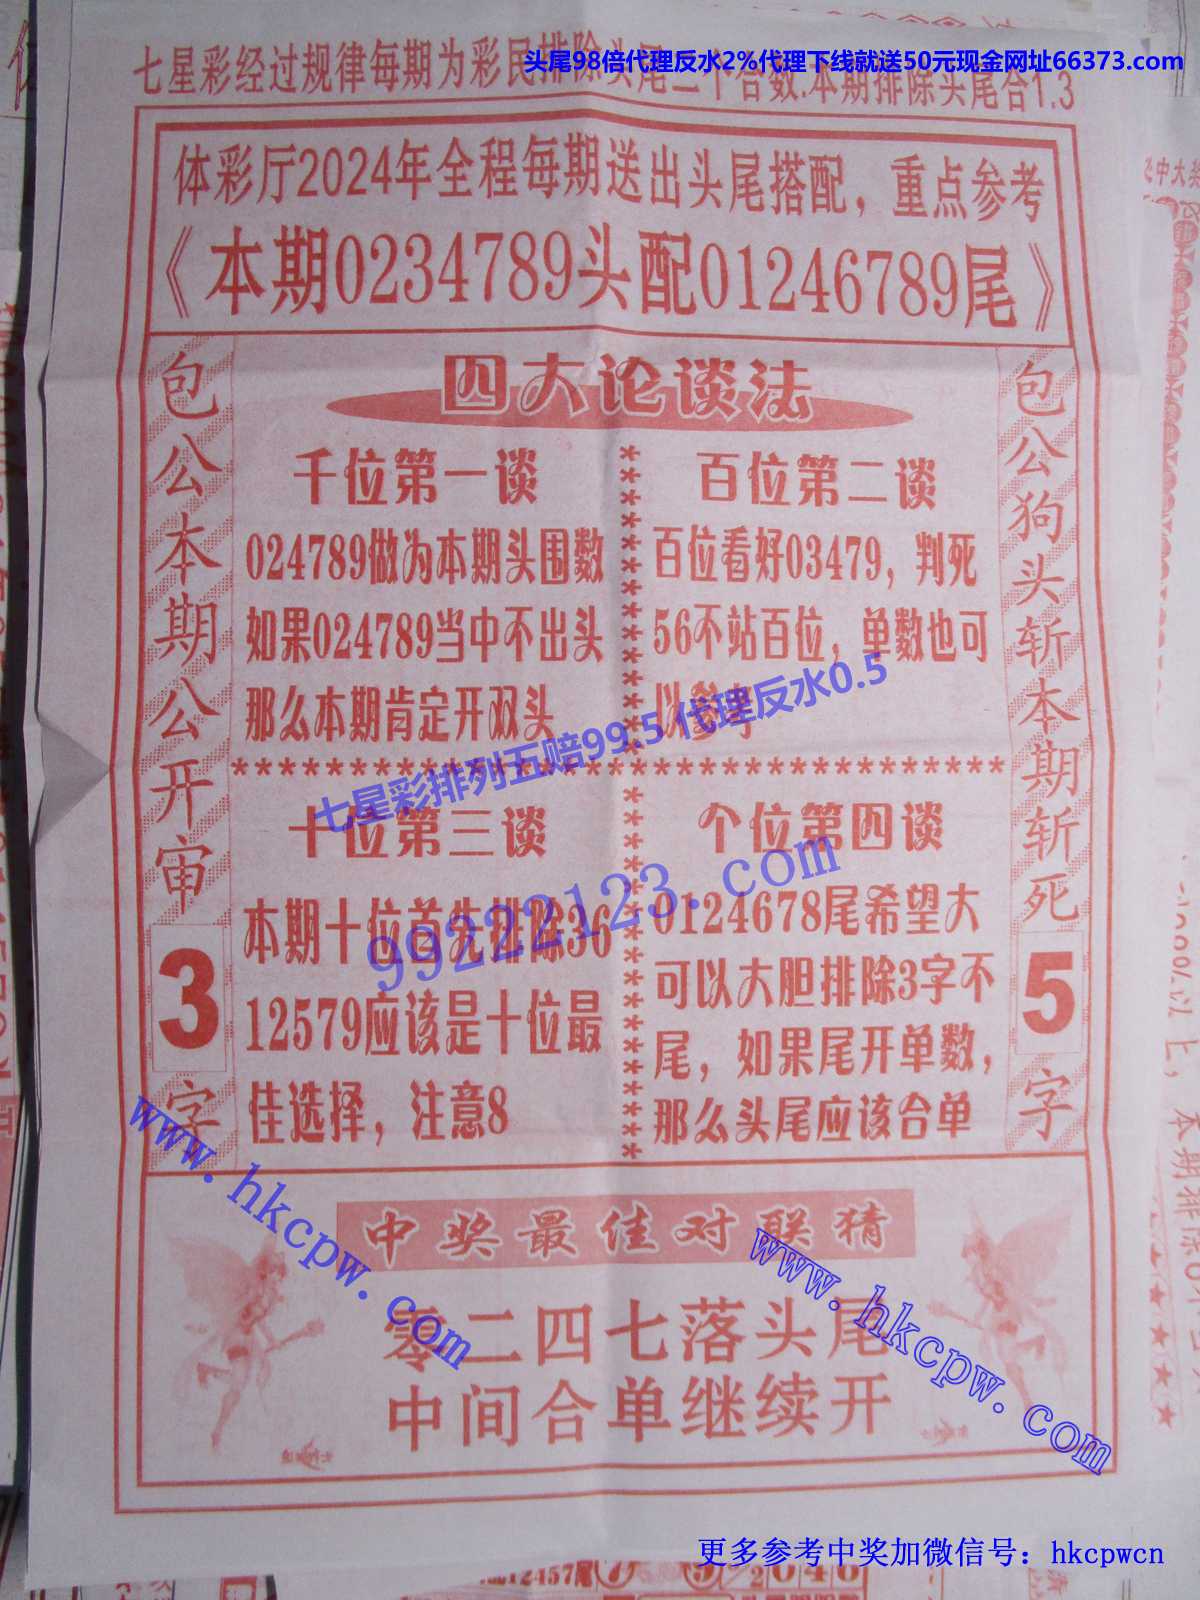 头尾98倍代理反水2%代理下线就送50元现金网址66373.com
七星彩经过规律每期为彩民排除头尾二个合数.本期排除头尾合1.3
体彩厅2024年全程每期送出头尾搭配，重点参考
《本期0234789头配01246789尾》
包公本期公开审3字
四大论谈法
千位第一谈
024789做为本期头围数
如果024789当中不出头
那么本期肯定开双头
百位第二谈
百位看好03479，判死
56不站百位，单数也可
以参考
七星彩排列五赔99.5 代理反水0.5
99222123.com
十位第三谈
本期十位首先排除36
12579应该是十位最
佳选择，注意8
个位第四谈
0124678尾希望大
可以大胆排除3字不
尾，如果尾开单数，
那么头尾应该合单
包公狗头斩本期斩死5字
中奖最佳对联猜
零二四七落头尾
中间合单继续开
www.hkcpw.com
www.hkcpw.com
更多参考中奖加微信号：hkcpwcn